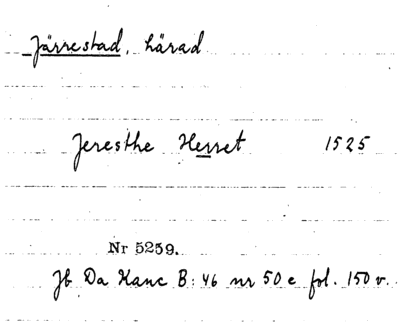 Järrestad, härad
Jeresthe Herret 1525
Nr 5259.
Jb Da Kanc B: 46 nr 50 e fol. 150 v.